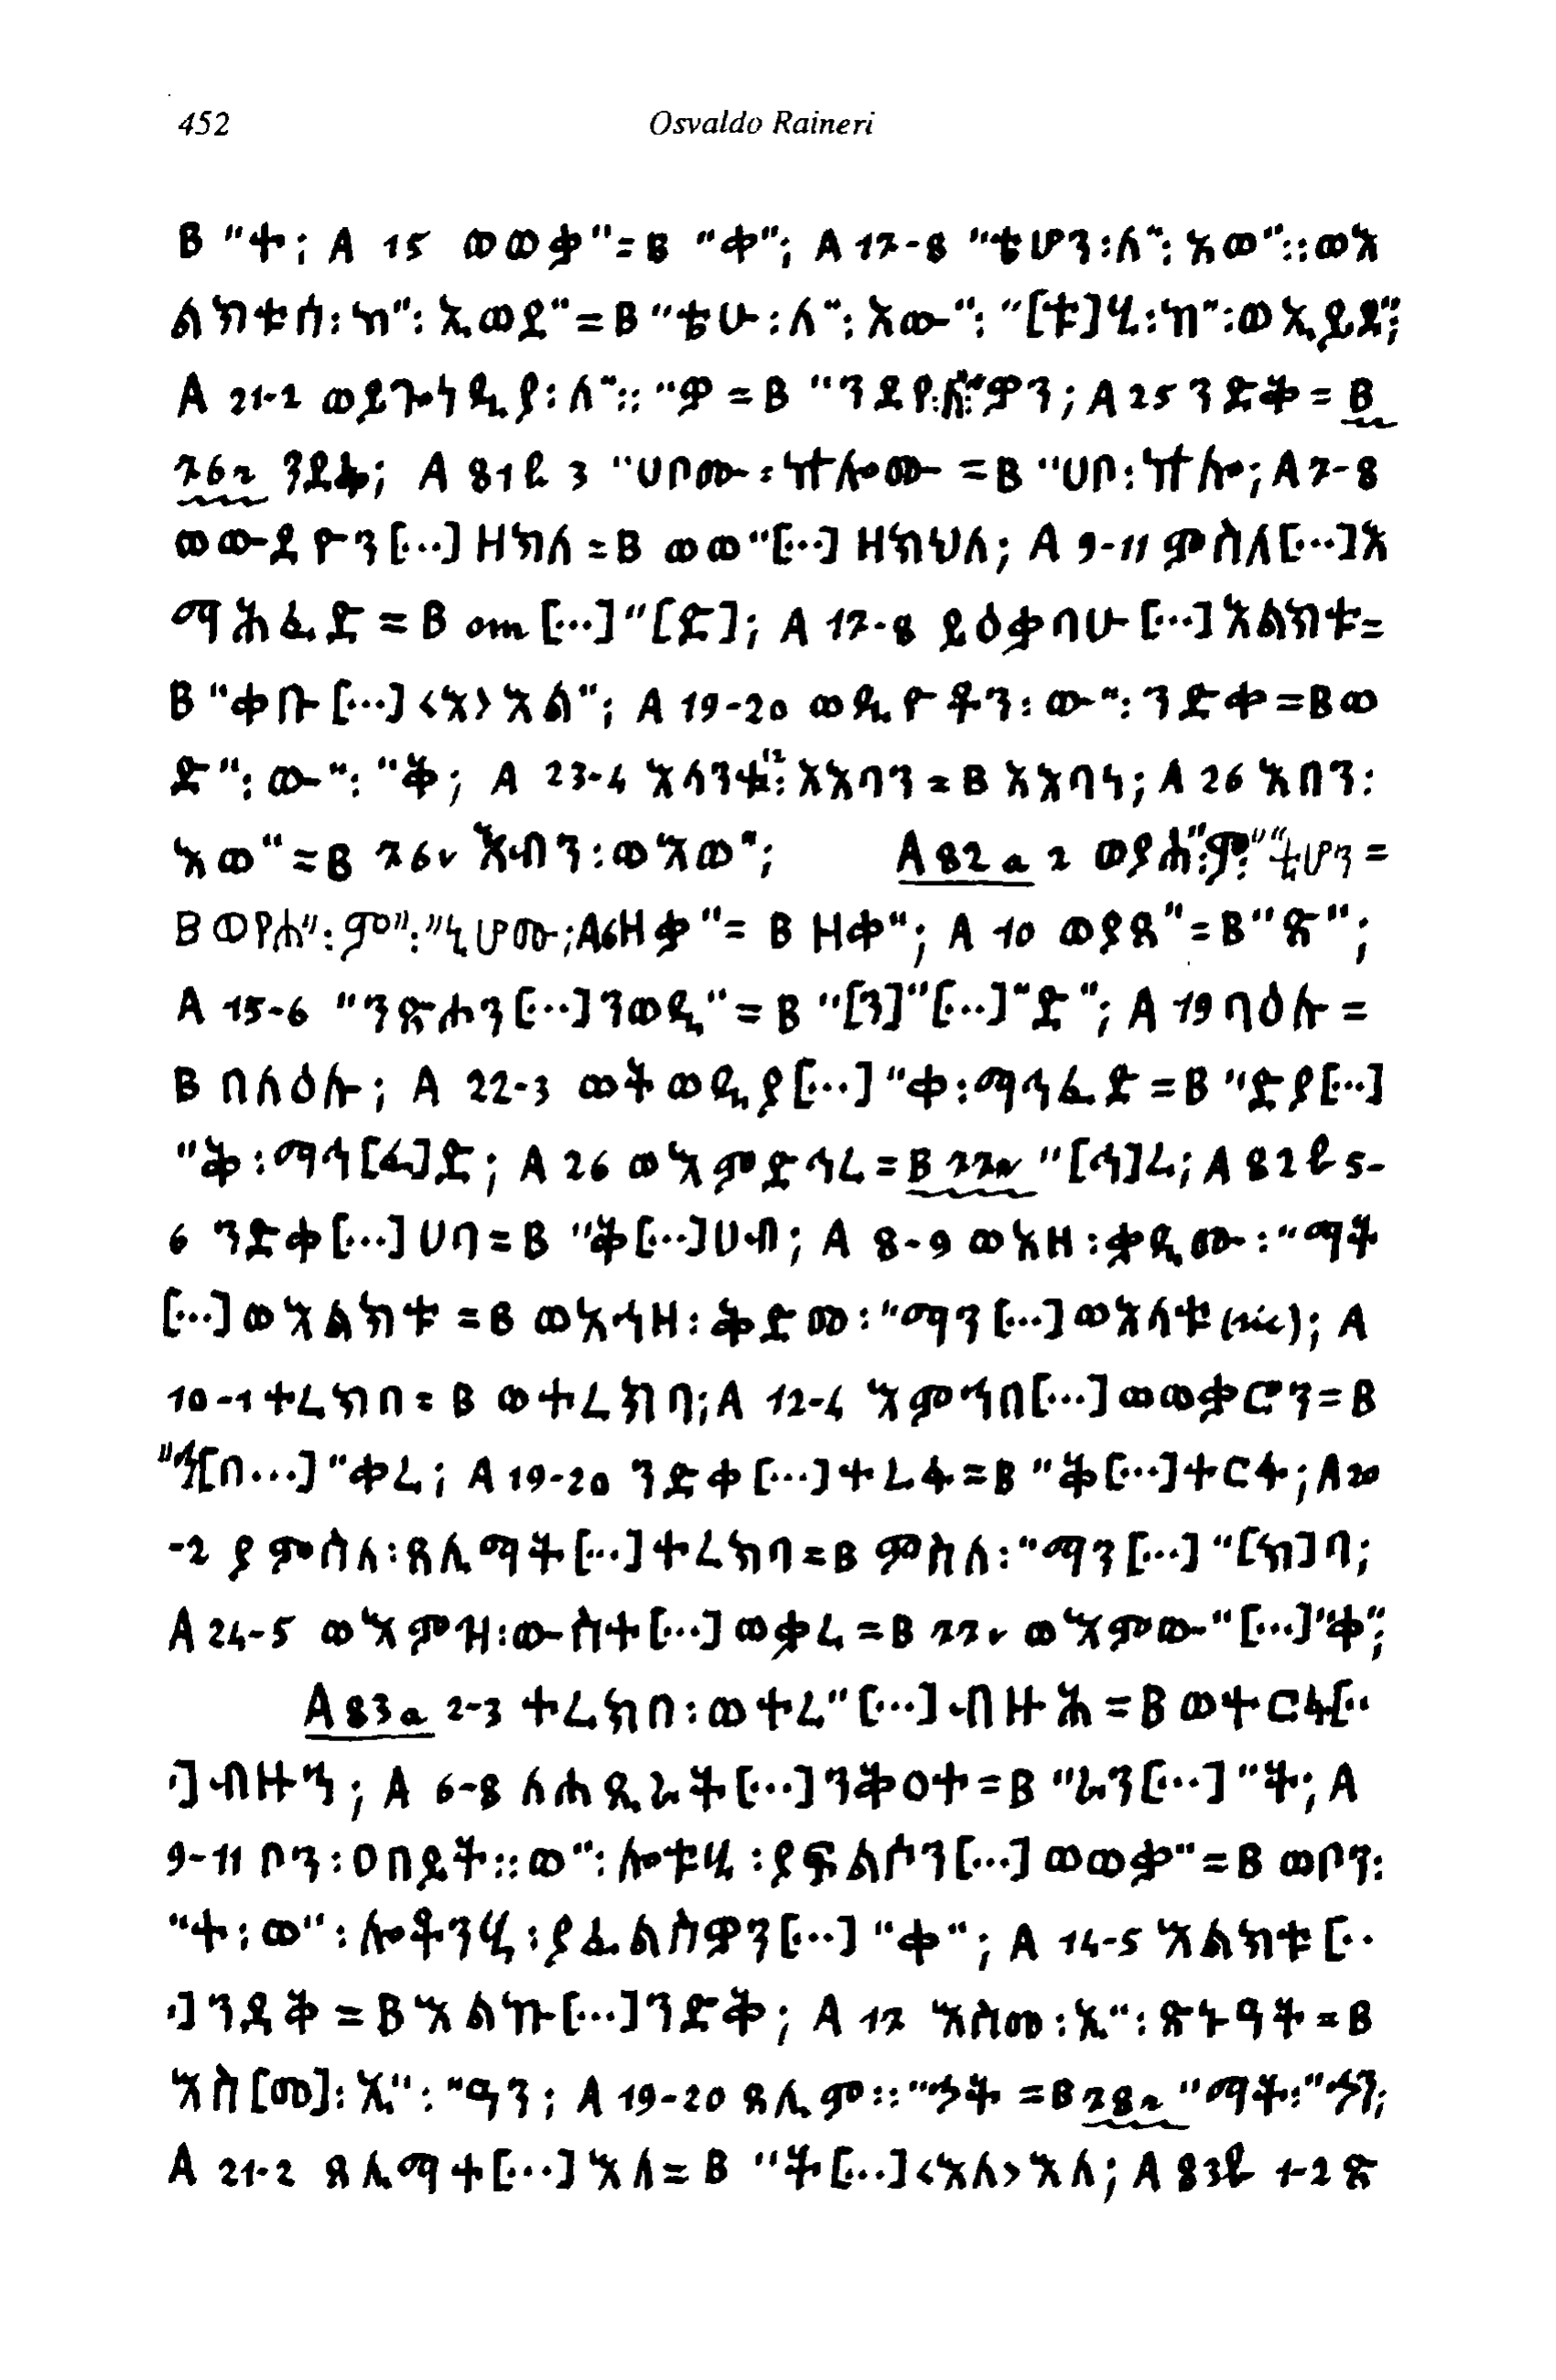 452 Osvaldo Raineri
B "ት; A 15 ወወቃ"=B "ቀ"; A 17-8 "ቴሆን:ለ": አወ"::ወእ
ልክቱሰ: ኩ": ኢወደ"=B "ቴሁ:ለ": አው": "[ቱ]ሂ:ኩ":ወኢይደ";
A 21-2 ወይጐነዲያ:ለ":: "ዎ=B "ንደየ:ለ"ዎን; A 25 ንድቅ=B
76r ንደቆ; A 81b 3 "ሀቦሙ:ኵሎሙ =B "ሀቦ:ኵሎ; A 7-8
ወውደዮን [...] ዘክለ=B ወወ"[...] ዘክህለ; A 9-11 ምስለ[...]እ
ማሕፈድ = B om [...]"[ድ]; A 17-8 ይዕቃባሁ [...] እልክቱ=
B "ቀቡ [...] <እ> እል"; A 19-20 ወዲዮቶን: ው": ንድቀ=B ወ
ድ": ው": "ቅ; A 23-4 እሳንቱ": አእባን=B አእባነ; A 26 እቡን:
አወ"=B 76v እብን:ወእወ"; A 82a 2 ወያሐ":ም":"ቲሆን=
B ወየሐ":ም":"ኒሆሙ; A6 ዘቃ"= B ዘቀ"; A 10 ወያጸ"=B"ጽ";
A 15-6 "ንጽሐን [...] ንወዲ"= B "[ን]"[...]"ድ"; A 19 ባዕሉ =
B በለዕሉ; A 22-3 ወትወዲያ [...] "ቀ:ማኅፈድ =B "ድያ[...]
"ቅ:ማኅ[ፈ]ድ; A 26 ወእምድኅሬ=B 77r "[ኅ]ሬ; A 82b 5-
6 ንድቀ [...] ሀባ=B "ቅ[...]ሀብ; A 8-9 ወእዘ:ቃዲሙ:"ማት
[...] ወእልክቱ =B ወእኅዘ: ቅድመ:"ማን [...] ወእሳቱ (sic); A
10-1 ተረክበ= B ወተረክባ; A 12-4 እምኀበ[...] ወወቃሮን=B
"ኀ[በ...] "ቀሬ; A 19-20 ንድቀ [...]ተሬፋ=B "ቅ[...]ተርፋ; A 20
-2 ያምሰለ:ጸሊማት [...] ተረክባ=B ምስለ:"ማን [...] "[ክ]ባ;
A 24-5 ወእምዝ:ውስተ [...] ወቃሬ =B 77v ወእምው" [...]"ቀ";
A 83a 2-3 ተረክበ:ወተረ" [...] ብዙሕ =B ወተርፋ[..
.] ብዙኅ; A 6-8 ለሐጺራት [...] ንቅዐተ=B "ራን [...] "ት; A
9-11 ቦን:ዐበይት::ወ": ሎቱሂ:ያፍልሰን [...] ወወቃ"=B ወቦን:
"ት:ወ": ሎቶንሂ:ያፈልስዎን [...] "ቀ"; A 14-5 እልክቱ [..
.] ንደቅ =B እልኩ [...] ንድቅ; A 17 እስመ:ኢ": ጽኑዓት=B
እስ[መ]: ኢ": "ዓን; A 19-20 ጸሊም:: "ኃት =B 78r "ማት:"ኃን;
A 21-2 ጸሊማተ [...] እለ= B "ት [...]<እለ> እለ; A 83b 1-2 ጽ